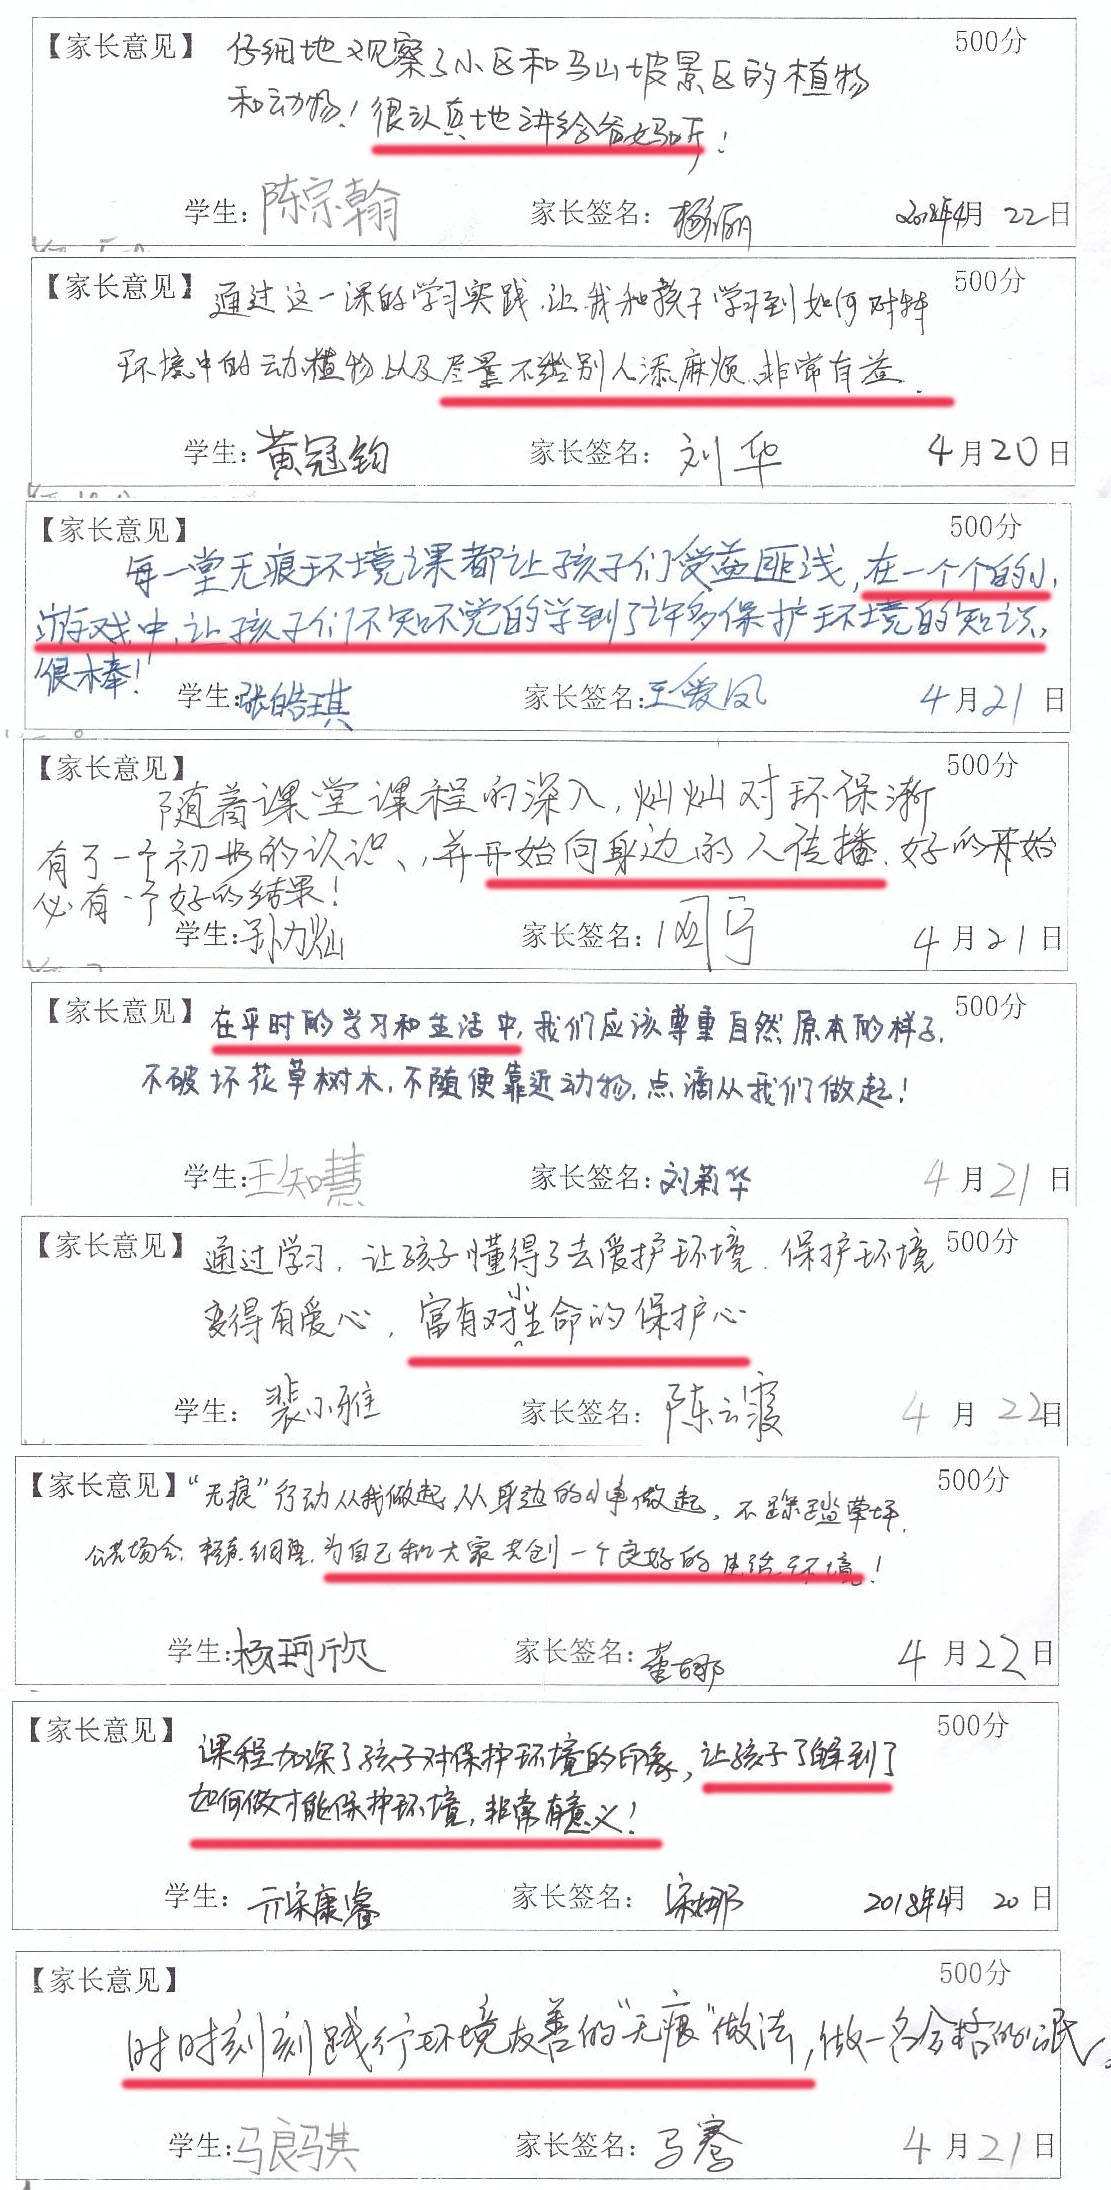 【家长意见】 500分
仔细地观察了小区和马山坡景区的植物
和动物！很认真地讲给爸妈听！
学生：陈宗翰 家长签名：杨丽 2018年4月22日
【家长意见】 500分
通过这一课的学习实践，让我和孩子学习到如何对待
环境中的动植物以及尽量不给别人添麻烦，非常有益．
学生：黄冠钧 家长签名：刘华 4月20日
【家长意见】 500分
每一堂无痕环境课都让孩子们受益匪浅，在一个个的小
游戏中，让孩子们不知不觉的学到了许多保护环境的知识，
很棒！
学生：张皓琪 家长签名：王爱凤 4月21日
【家长意见】 500分
随着课堂课程的深入，灿灿对环保渐
有了一个初步的认识、，并开始向身边的人传播．好的开始
必有一个好的结果！
学生：孙力灿 家长签名： 4月21日
【家长意见】 500分
在平时的学习和生活中，我们应该尊重自然原本的样子，
不破坏花草树木，不随便靠近动物，点滴从我们做起！
学生：王知慧 家长签名：刘莉华 4月21日
【家长意见】 500分
通过学习，让孩子懂得了去爱护环境．保护环境
变得有爱心，富有对小生命的保护心
学生：裴小雅 家长签名：陈云霞 4月22日
【家长意见】 500分
“无痕”行动从我做起，从身边的小事做起，不踩踏草坪，
公共场合 为自己和大家共创一个良好的生活环境！
学生：杨珂欣 家长签名：董娜 4月22日
【家长意见】 500分
课程加深了孩子对保护环境的印象，让孩子了解到了
如何做才能保护环境，非常有意义！
学生：亓宋康睿 家长签名：宋娜 2018年4月20日
【家长意见】 500分
时时刻刻践行环境友善的“无痕”做法，做一名合格的公民。
学生：马良骐 家长签名：马骞 4月21日